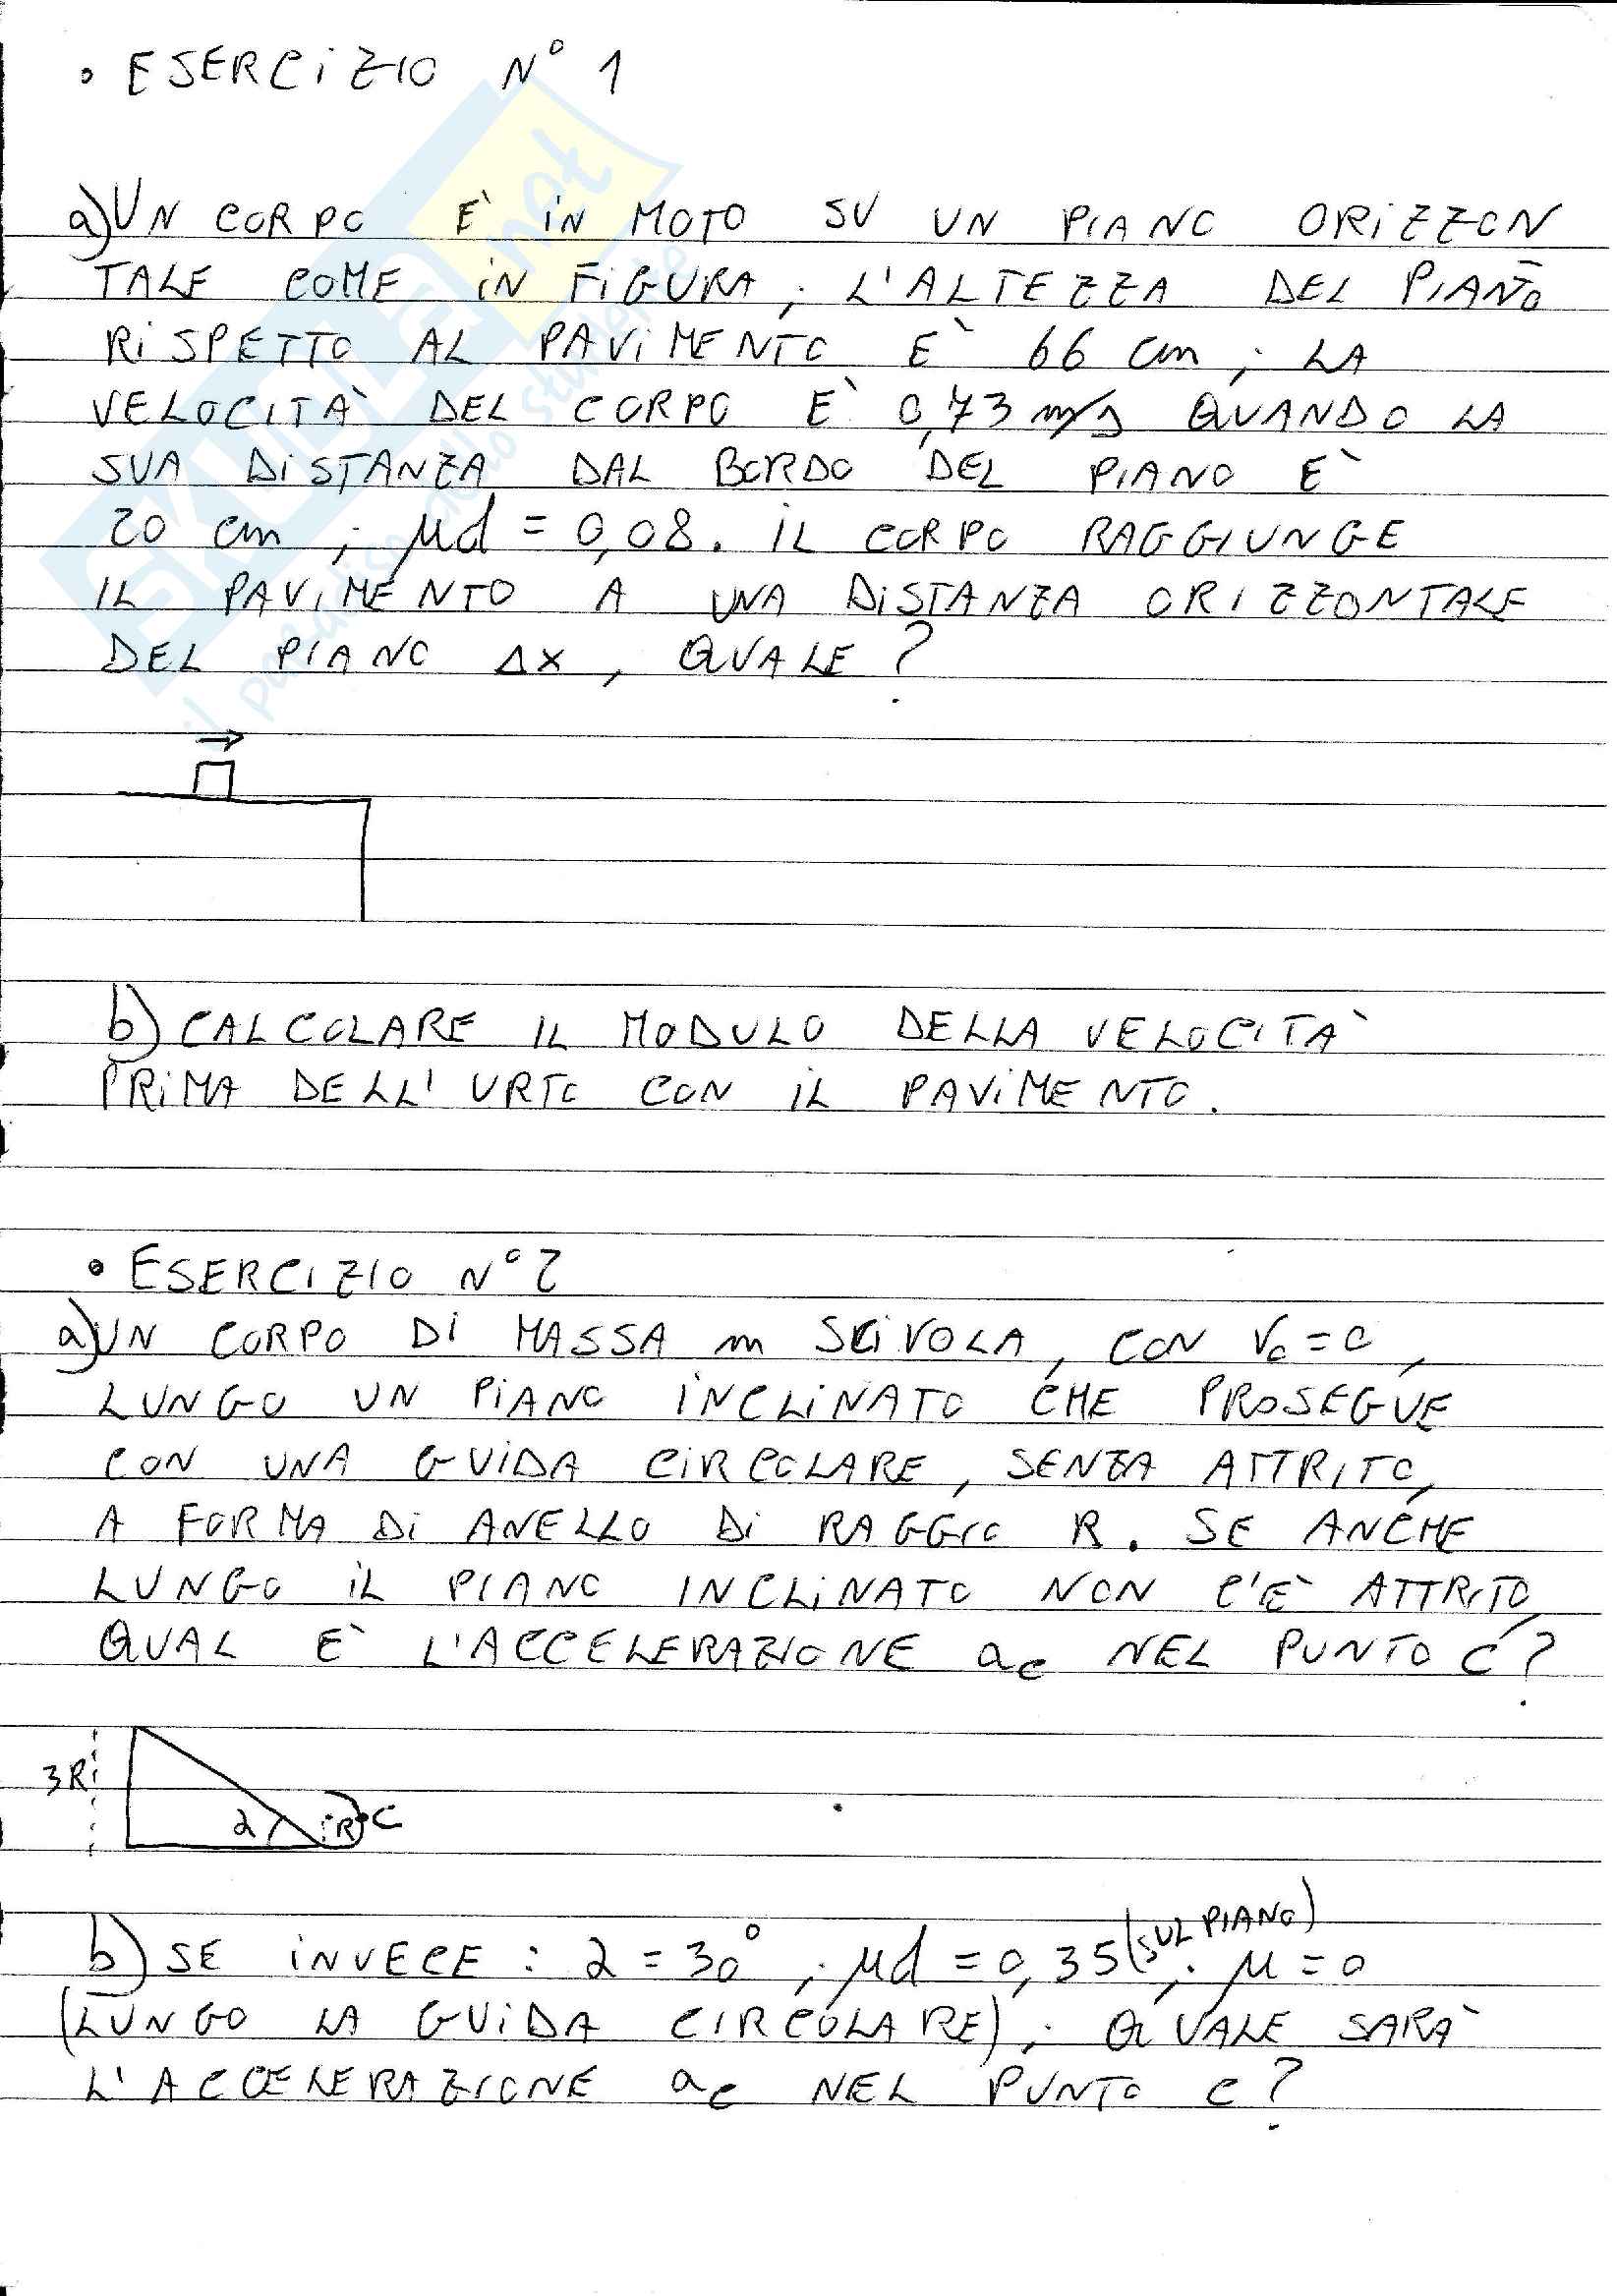 • ESERCIZIO N° 1
a) UN CORPO E' IN MOTO SU UN PIANO ORIZZON
TALE COME IN FIGURA; L'ALTEZZA DEL PIANO
RISPETTO AL PAVIMENTO E' 66 cm; LA
VELOCITA' DEL CORPO E' 0,73 m/s QUANDO LA
SUA DISTANZA DAL BORDO DEL PIANO E'
20 cm; μd = 0,08. IL CORPO RAGGIUNGE
IL PAVIMENTO A UNA DISTANZA ORIZZONTALE
DEL PIANO Δx, QUALE?
b) CALCOLARE IL MODULO DELLA VELOCITA'
PRIMA DELL'URTO CON IL PAVIMENTO.
• ESERCIZIO N° 2
a) UN CORPO DI MASSA m SCIVOLA, CON V₀ = 0,
LUNGO UN PIANO INCLINATO CHE PROSEGUE
CON UNA GUIDA CIRCOLARE, SENZA ATTRITO,
A FORMA DI ANELLO DI RAGGIO R. SE ANCHE
LUNGO IL PIANO INCLINATO NON C'E' ATTRITO
QUAL E' L'ACCELERAZIONE ac NEL PUNTO C?
3R
α R C
b) SE INVECE: α = 30°; μd = 0,35 (SUL PIANO); μ = 0
(LUNGO LA GUIDA CIRCOLARE); QUALE SARA'
L'ACCELERAZIONE ac NEL PUNTO C?
SKUOLA.net
il paradiso dello studente